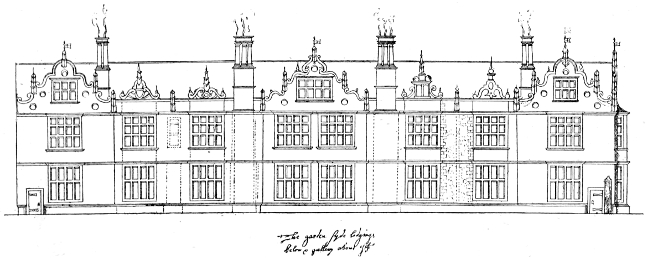 The garden syde lodgings
below & gallery above